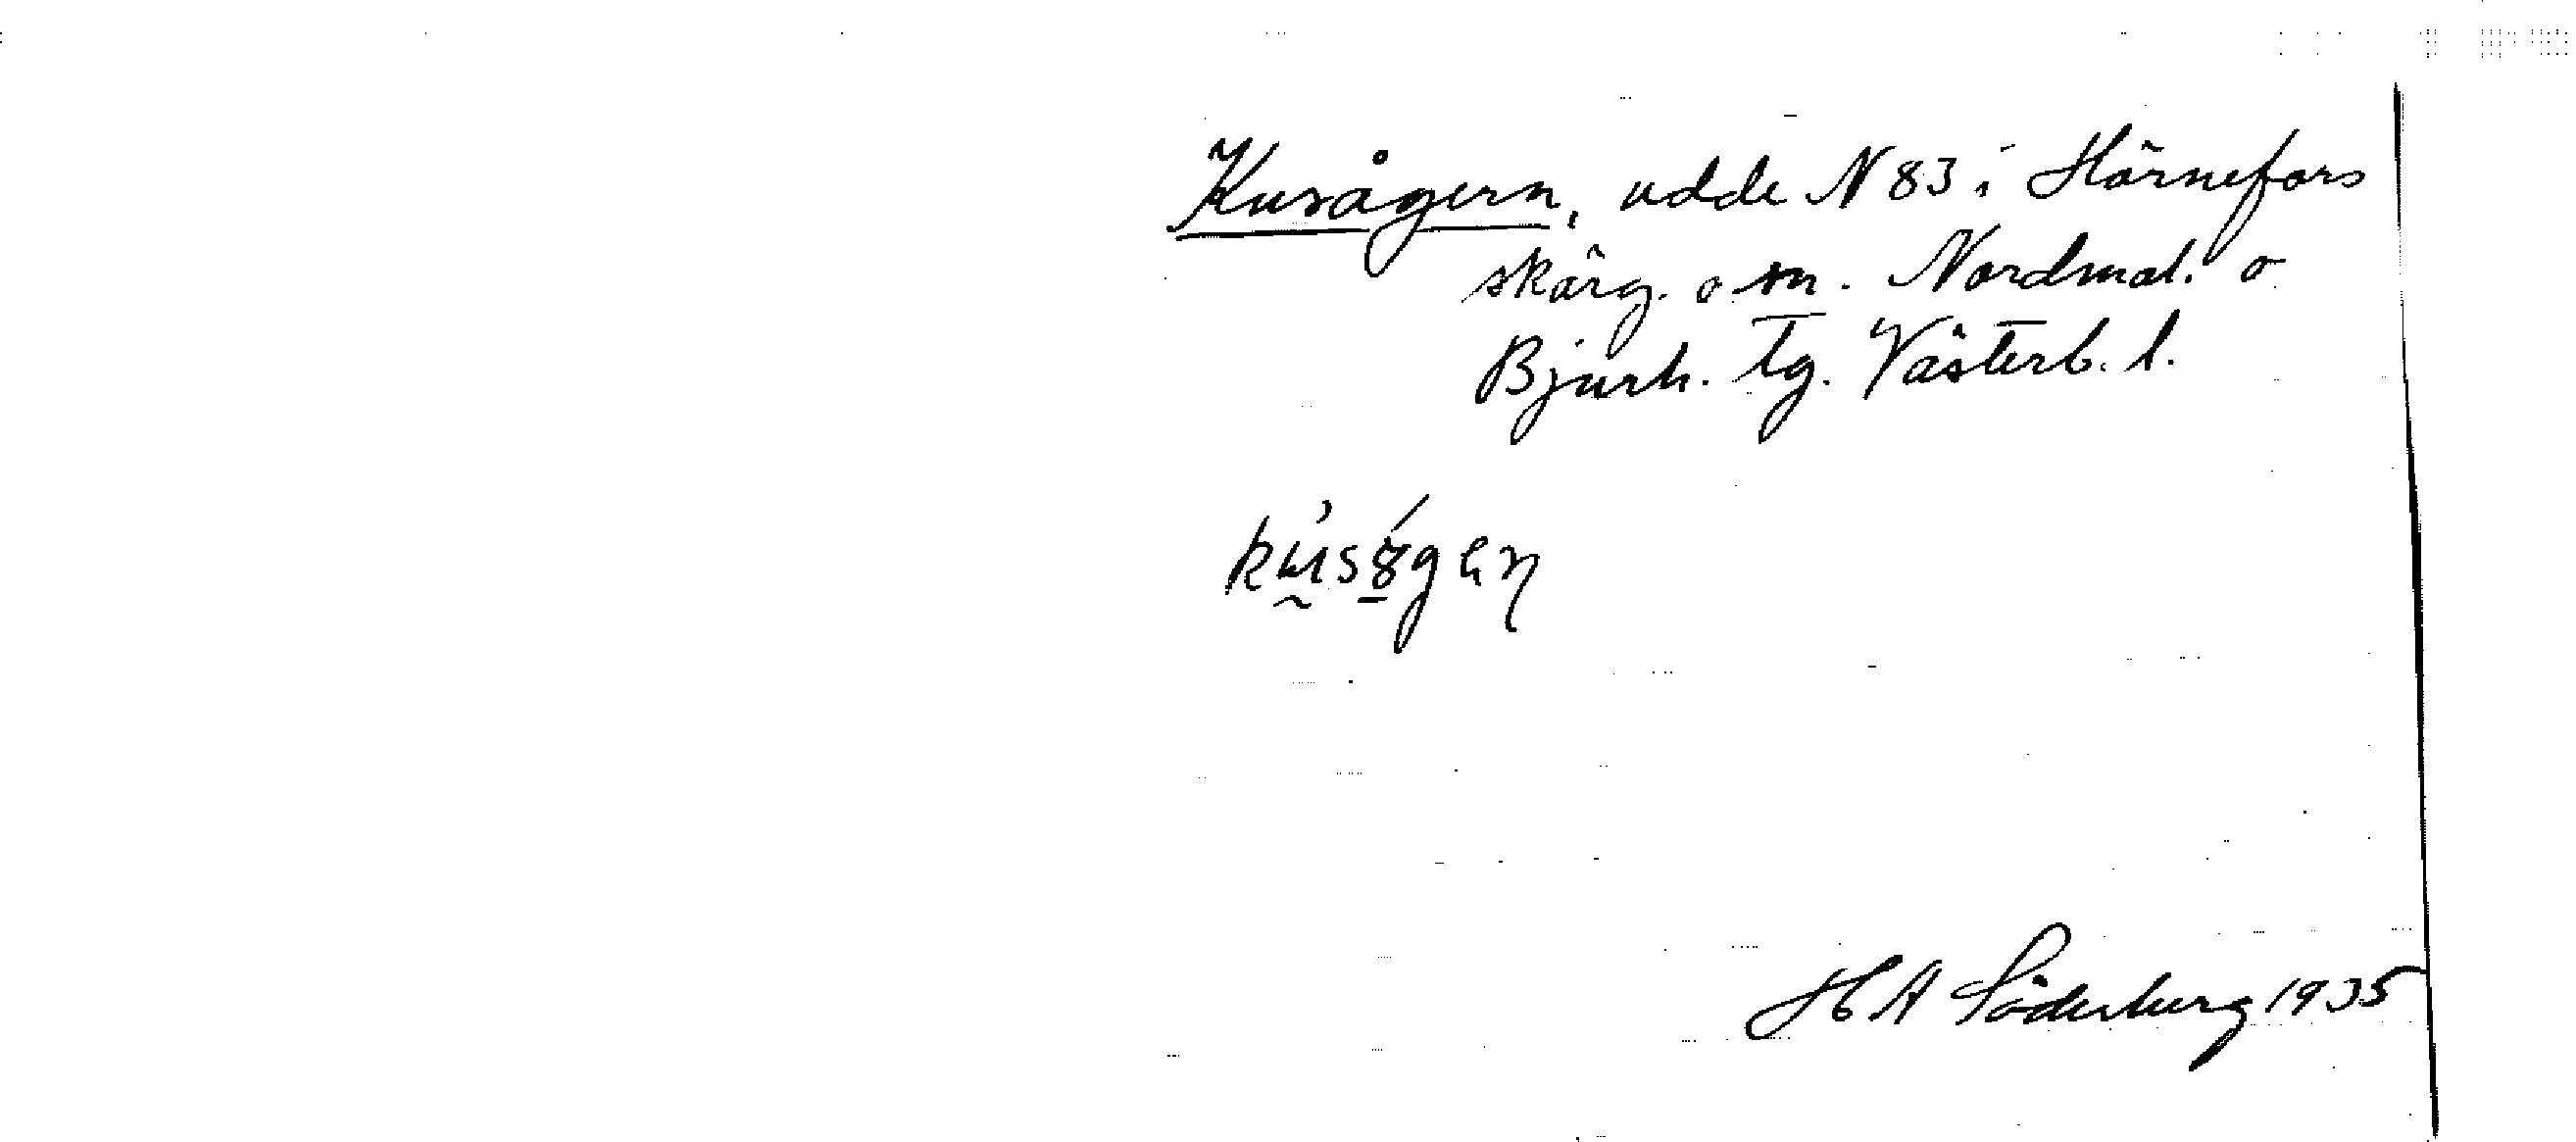 Kusågern, udde N 83 i Hörnefors
skärg. o sn. Nordmal. o
Bjurh. tg. Västerb. l.
H A Söderberg 1935